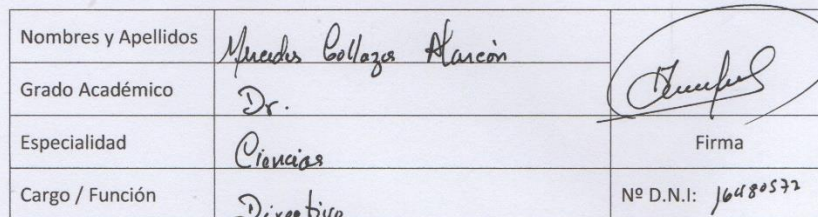 Nombres y Apellidos Mercedes Collazos Alarcón
Grado Académico Dr.
Especialidad Ciencias
Firma
Cargo / Función Directivo
Nº D.N.I: 16480572